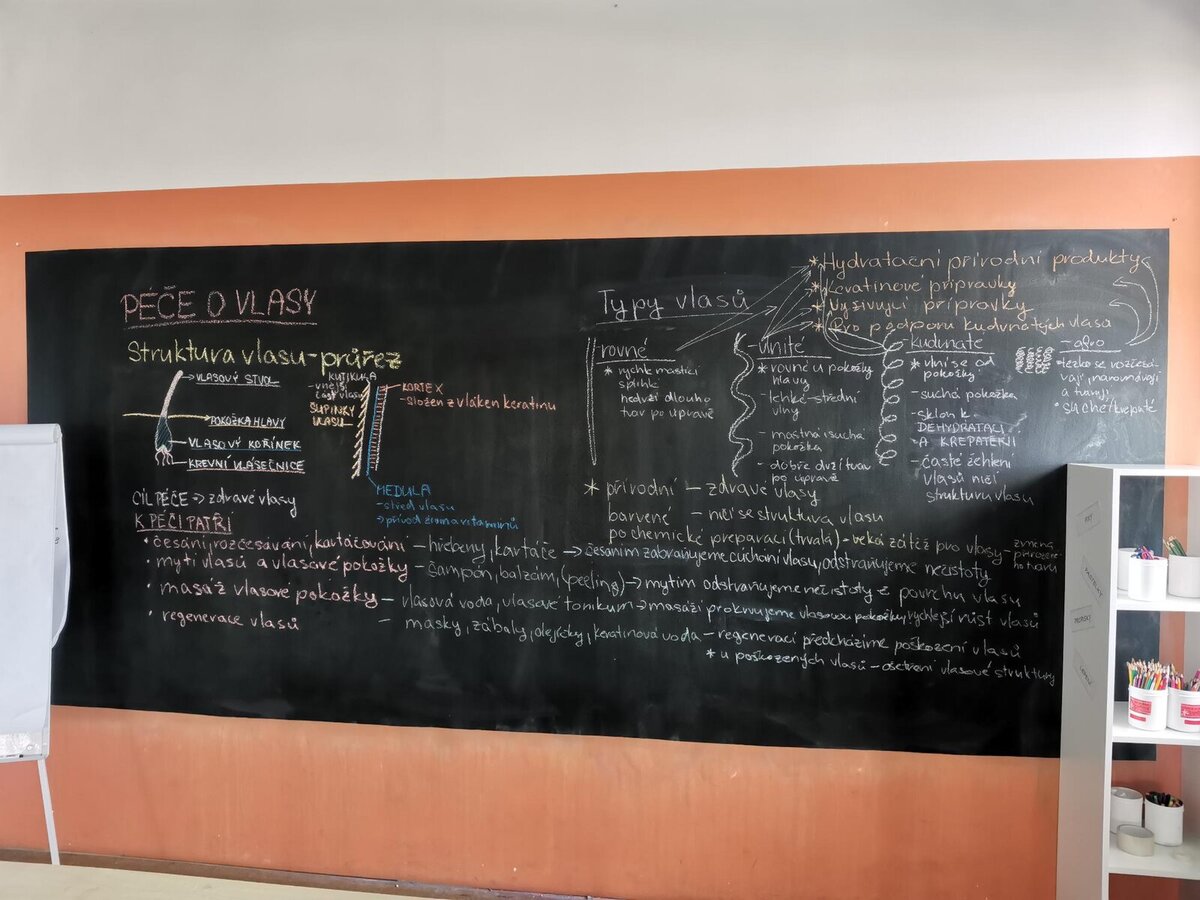 PÉČE O VLASY
Struktura vlasu - průřez
VLASOVÝ STVOL
POKOŽKA HLAVY
VLASOVÝ KOŘÍNEK
KREVNÍ VLÁSEČNICE
KUTIKULA
- vnější
část vlasu
ŠUPINKY
VLASU
KORTEX
- složen z vláken keratinu
MEDULA
- střed vlasu
CÍL PÉČE → zdravé vlasy
K PÉČI PATŘÍ
• česání, rozčesávání, kartáčování - hřebeny, kartáče → česáním zabraňujeme cuchání vlasů, odstraňujeme nečistoty
• mytí vlasů a vlasové pokožky - šampón, balzám, (peeling) → mytím odstraňujeme nečistoty z povrchu vlasu
• masáž vlasové pokožky - vlasová voda, vlasové tonikum → masáží prokrvujeme vlasovou pokožku, rychlejší růst vlasů
• regenerace vlasů - masky, zábaly, olejíčky, keratinová voda - regenerací předcházíme poškození vlasů
* u poškozených vlasů - ošetření vlasové struktury
Typy vlasů
* Hydratační přírodní produkty
* Keratinové přípravky
* Vyživující přípravky
* Pro podporu kudrnatých vlasů
- rovné
* rychle mastící
splihlé
nedrží dlouho
tvar po úpravě
- vlnité
* rovné u pokožky
hlavy
- lehké - střední
vlny
- mastná i suchá
pokožka
- dobře drží tvar
po úpravě
- kudrnaté
* vlní se od
pokožky
- suchá pokožka
- sklon k
DEHYDRATACI
A KREPATĚNÍ
- časté žehlení
vlasů ničí
strukturu vlasu
- afro
• těžko se rozčesá-
vají, narovnávají
a tvarují
• suché/krepaté
* přírodní - zdravé vlasy
barvené - ničí se struktura vlasu
po chemické preparaci (trvalá) - velká zátěž pro vlasy - změna
přirozené-
ho tvaru